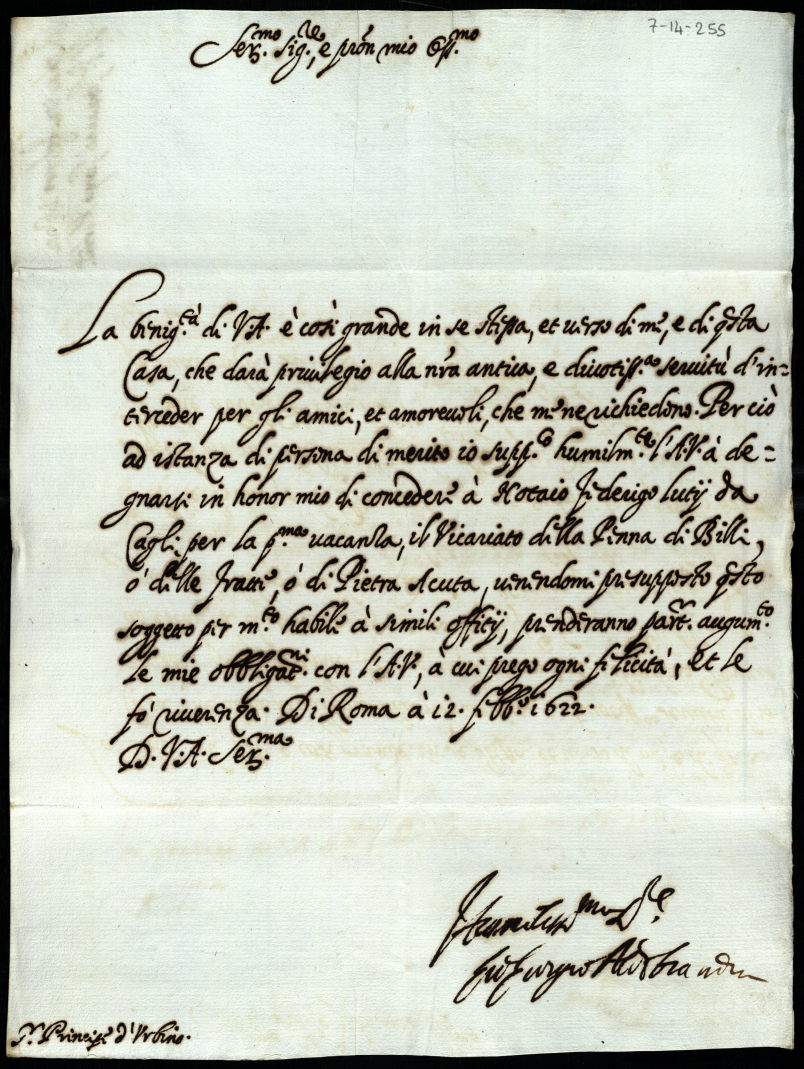 7-14-255
Ser.mo Sig.re, e pron mio Oss.mo
La benig.tà di V.A. è così grande in se stessa, et verso di me, e di qsta
Casa, che darà privilegio alla nra antica, e divotiss.a servitù d'in=
terceder per gli amici, et amorevoli, che me ne richiedono. Per ciò
ad istanza di persona di merito io supp.co humilm.te l'A.V. à de=
gnarsi in honor mio di concedere à Notaio Federigo Lutij da
Cagli per la p.ma vacanza, il Vicariato della Penna di Billi,
ò delle Fratte, ò di Pietra Acuta, venendomi presupposto qsto
soggetto per m.to habile à simili offitij, prenderanno part.r augum.to
le mie obbligat.ni con l'A.V., à cui prego ogni felicità, et le
fò riverenza. Di Roma à 12. febb.o 1622.
D. V.A. Ser.ma
Humiliss.mo Se.re
Gio Giorgio Aldobrandin
S.r Principe d'Urbino.